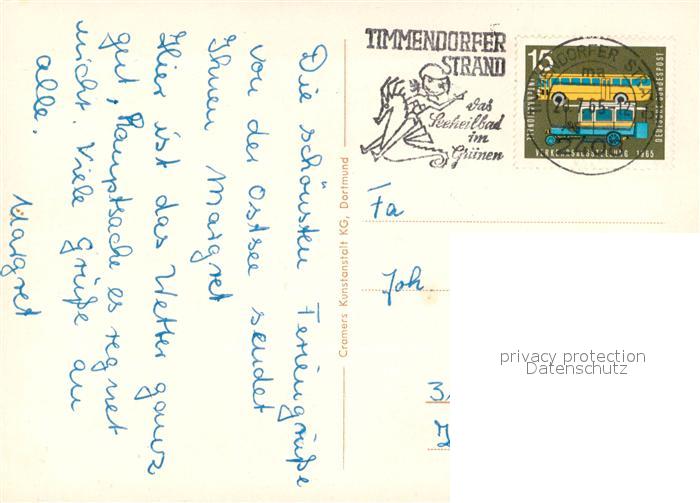 Die schönsten Feriengrüße
von der Ostsee sendet
Ihnen Margret
Hier ist das Wetter ganz
gut, Hauptsache es regnet
nicht. Viele Grüße an
alle.
Margret
Cramers Kunstanstalt KG, Dortmund
TIMMENDORFER
STRAND
das
Seeheilbad
im
Grünen
15
DEUTSCHE BUNDESPOST
VERKEHRSAUSSTELLUNG 1965
Fa
Joh
privacy protection
Datenschutz